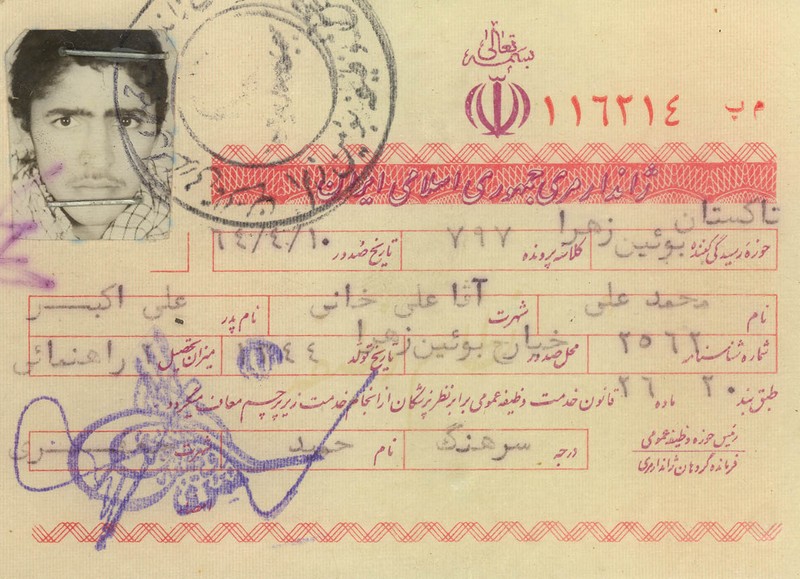 بسمه تعالی
م پ ۱۱۶۲۱٤
ژاندارمری جمهوری اسلامی ایران
تاکستان
حوزه رسیدگی کننده بوئین زهرا کلاسه پرونده ۷۹۷ تاریخ صدور ٦٤/٤/۱۰
نام محمد علی شهرت آقا علی خانی نام پدر علی اکبر
شماره شناسنامه ۲۵٦۲ محل صدور خیارج بوئین زهرا تاریخ تولد ۱۳٤٤ میزان تحصیل راهنمائی
طبق بند ۲۰ ماده ۲٦ قانون خدمت وظیفه عمومی برابر نظر پزشکان از انجام خدمت زیر پرچم معاف میگردد
رئیس حوزه وظیفه عمومی
فرمانده گروهان ژاندارمری
درجه سرهنگ نام حمید شهرت
امضاء